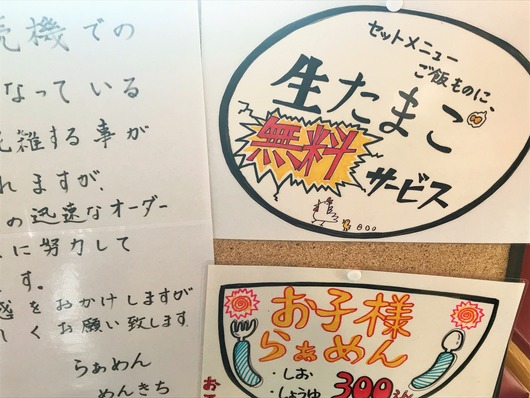 機での
なっている
雑する事が
れますが、
の迅速なオーダー
に努力して
す。
をおかけしますが
くお願い致します
らぁめん
めんきち
セットメニュー
ご飯ものに、
生たまご
無料
サービス
お子様
らぁめん
・しお
・しょうゆ
300えん
お